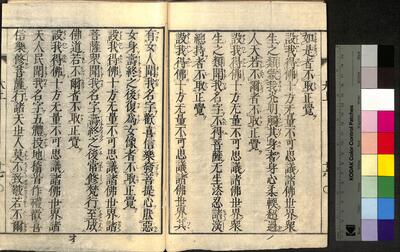 如是者不取正覺
設我得佛十方无量不可思議諸佛世界衆
生之類蒙我光明觸其身者身心柔輭超過
人天若不爾者不取正覺
設我得佛十方无量不可思議諸佛世界衆
生之類聞我名字不得菩薩无生法忍諸深
緫持者不取正覺
設我得佛十方无量不可思議諸佛世界其
有女人聞我名字歡喜信樂發菩提心厭惡
女身壽終之後復爲女像者不取正覺
設我得佛十方无量不可思議諸佛世界諸
菩薩衆聞我名字壽終之後常修梵行至成
佛道若不爾者不取正覺
設我得佛十方无量不可思議諸佛世界諸
天人民聞我名字五體投地稽首作禮歡喜
信樂修菩薩行諸天世人莫不致敬若不爾
KODAK Color Control Patches